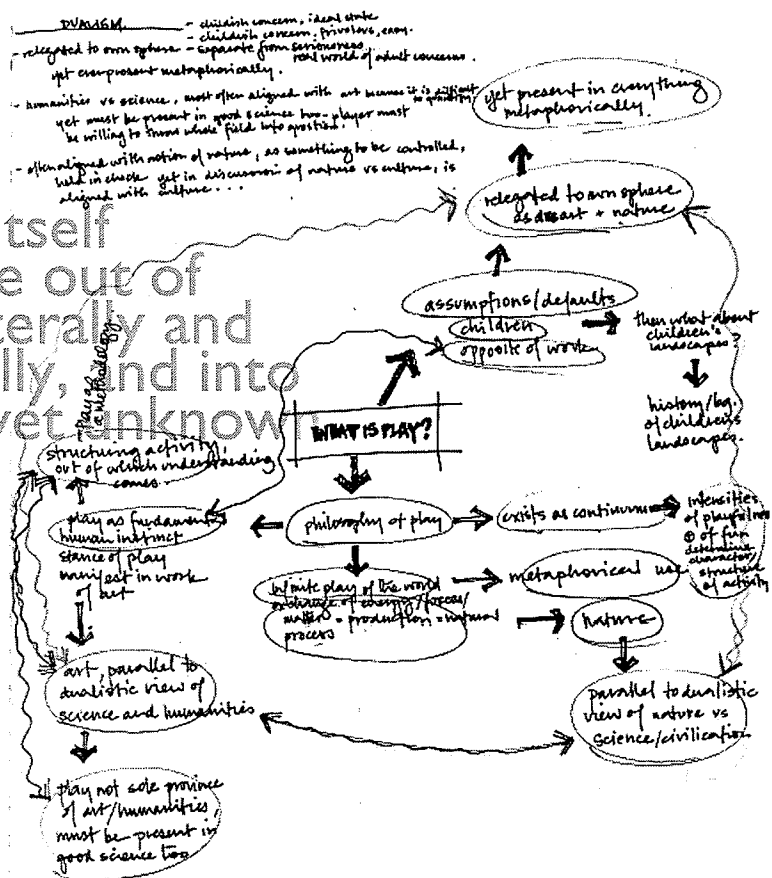 DUALISM
- childish concern, ideal state
- childish concern, frivolous, easy.
- relegated to own sphere - separate from seriousness
real world of adult concerns.
yet everpresent metaphorically.
- humanities vs science, most often aligned with art because it is difficult
to quantify,
yet must be present in good science too - player must
be willing to throw whole field into question.
- often aligned with notion of nature, as something to be controlled,
held in check yet in discussion of nature vs culture, is
aligned with culture . . .
yet present in everything
metaphorically.
relegated to own sphere
as art + nature
assumptions/defaults
children
opposite of work
then what about
children's
landscapes?
history/
of children's
landscapes.
tself
e out of
terally and
lly, and into
yet unknown
play as
a methodology.
WHAT IS PLAY?
structuring activity,
out of which understanding
comes.
play as fundamental
human instinct
stance of play
manifest in work
of art
philosophy of play
exists as continuum
intensities
of playfulness
of fun
determine
character/
structure
of activity
infinite play of the world
exchange of energy/forces/
matter = production = natural
process
metaphorical use
nature
art, parallel to
dualistic view of
science and humanities
parallel to dualistic
view of nature vs
science/civilization
play not sole province
of art/humanities,
must be present in
good science too